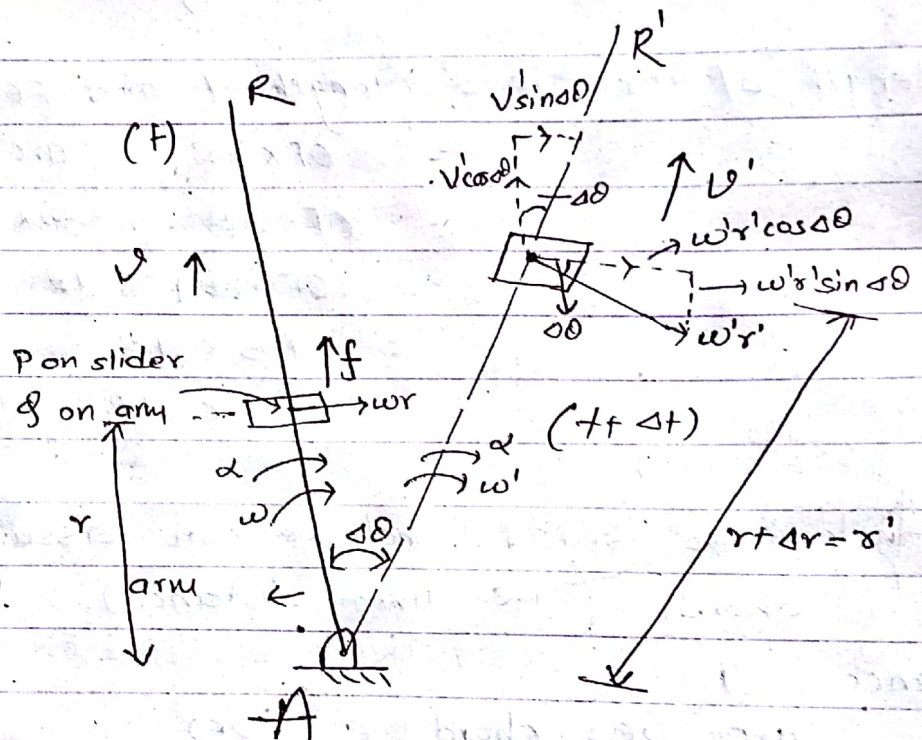 R
R'
(t)
V'sinΔθ
V'cosΔθ
Δθ
v'
w'r'cosΔθ
w'r'sinΔθ
Δθ
w'r'
v
P on slider
Q on arm
f
wr
(t+Δt)
α
w
α
w'
Δθ
r
arm
r+Δr=r'
A